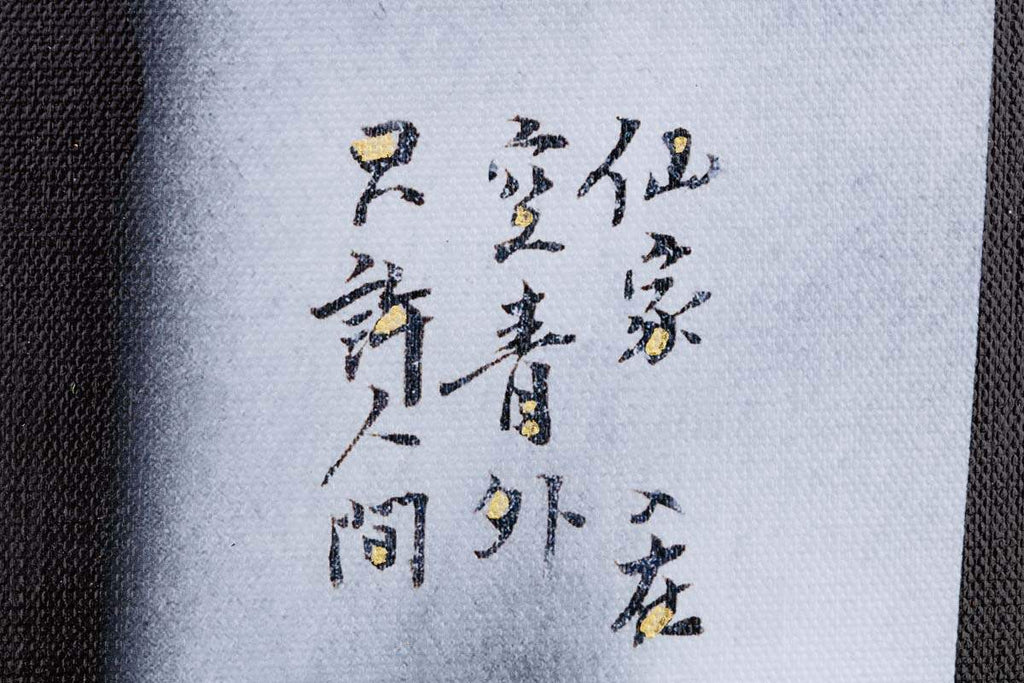 仙家在
空青外
只許人間